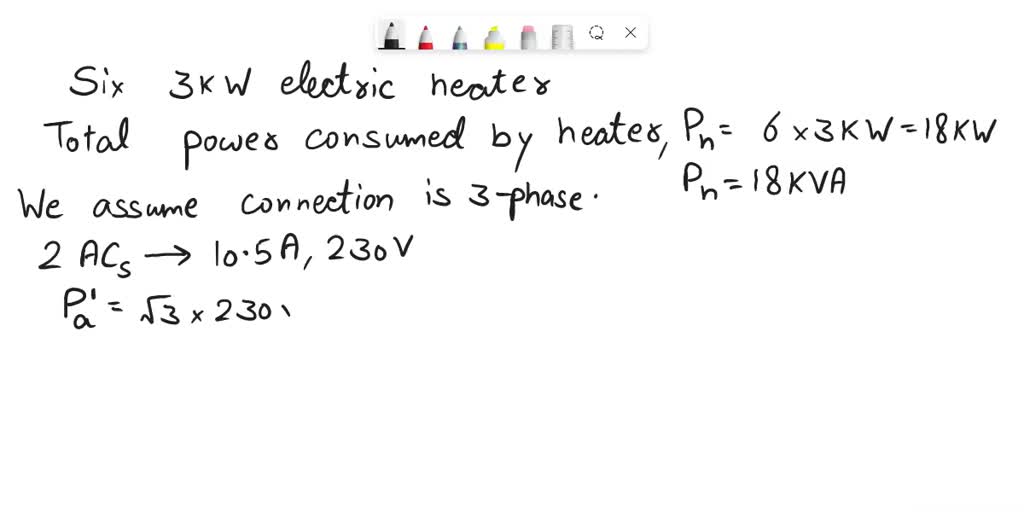 Six 3KW electric heater
Total power consumed by heater, Pn = 6 × 3KW = 18KW
Pn = 18KVA
We assume connection is 3-phase.
2 ACs → 10.5A, 230V
Pa' = √3 × 230